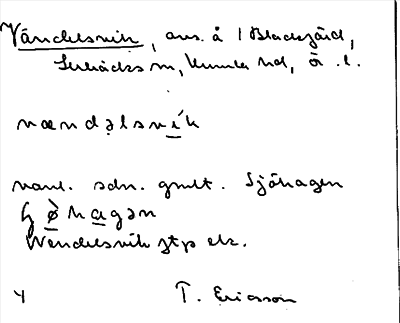 Vändelsvik, avs. å 1 Blacksjöid,
Lerbäcks sn, Kumla hd, Ör. l.
vændəlsvík
vanl. sdn. gmlt. Sjöhagen
ʃǿhagən
Wendelsvik jtp etc.
4 T. Ericsson